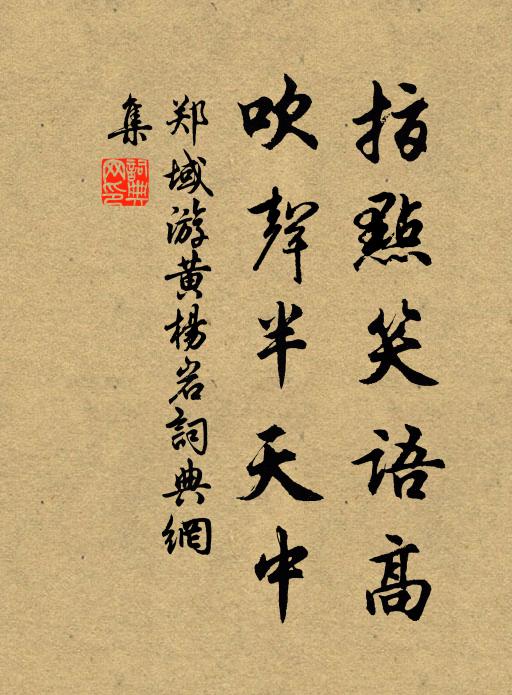 指點笑語高
吹聲半天中
郑域游黄楊岩詞典網
集
詞典網印